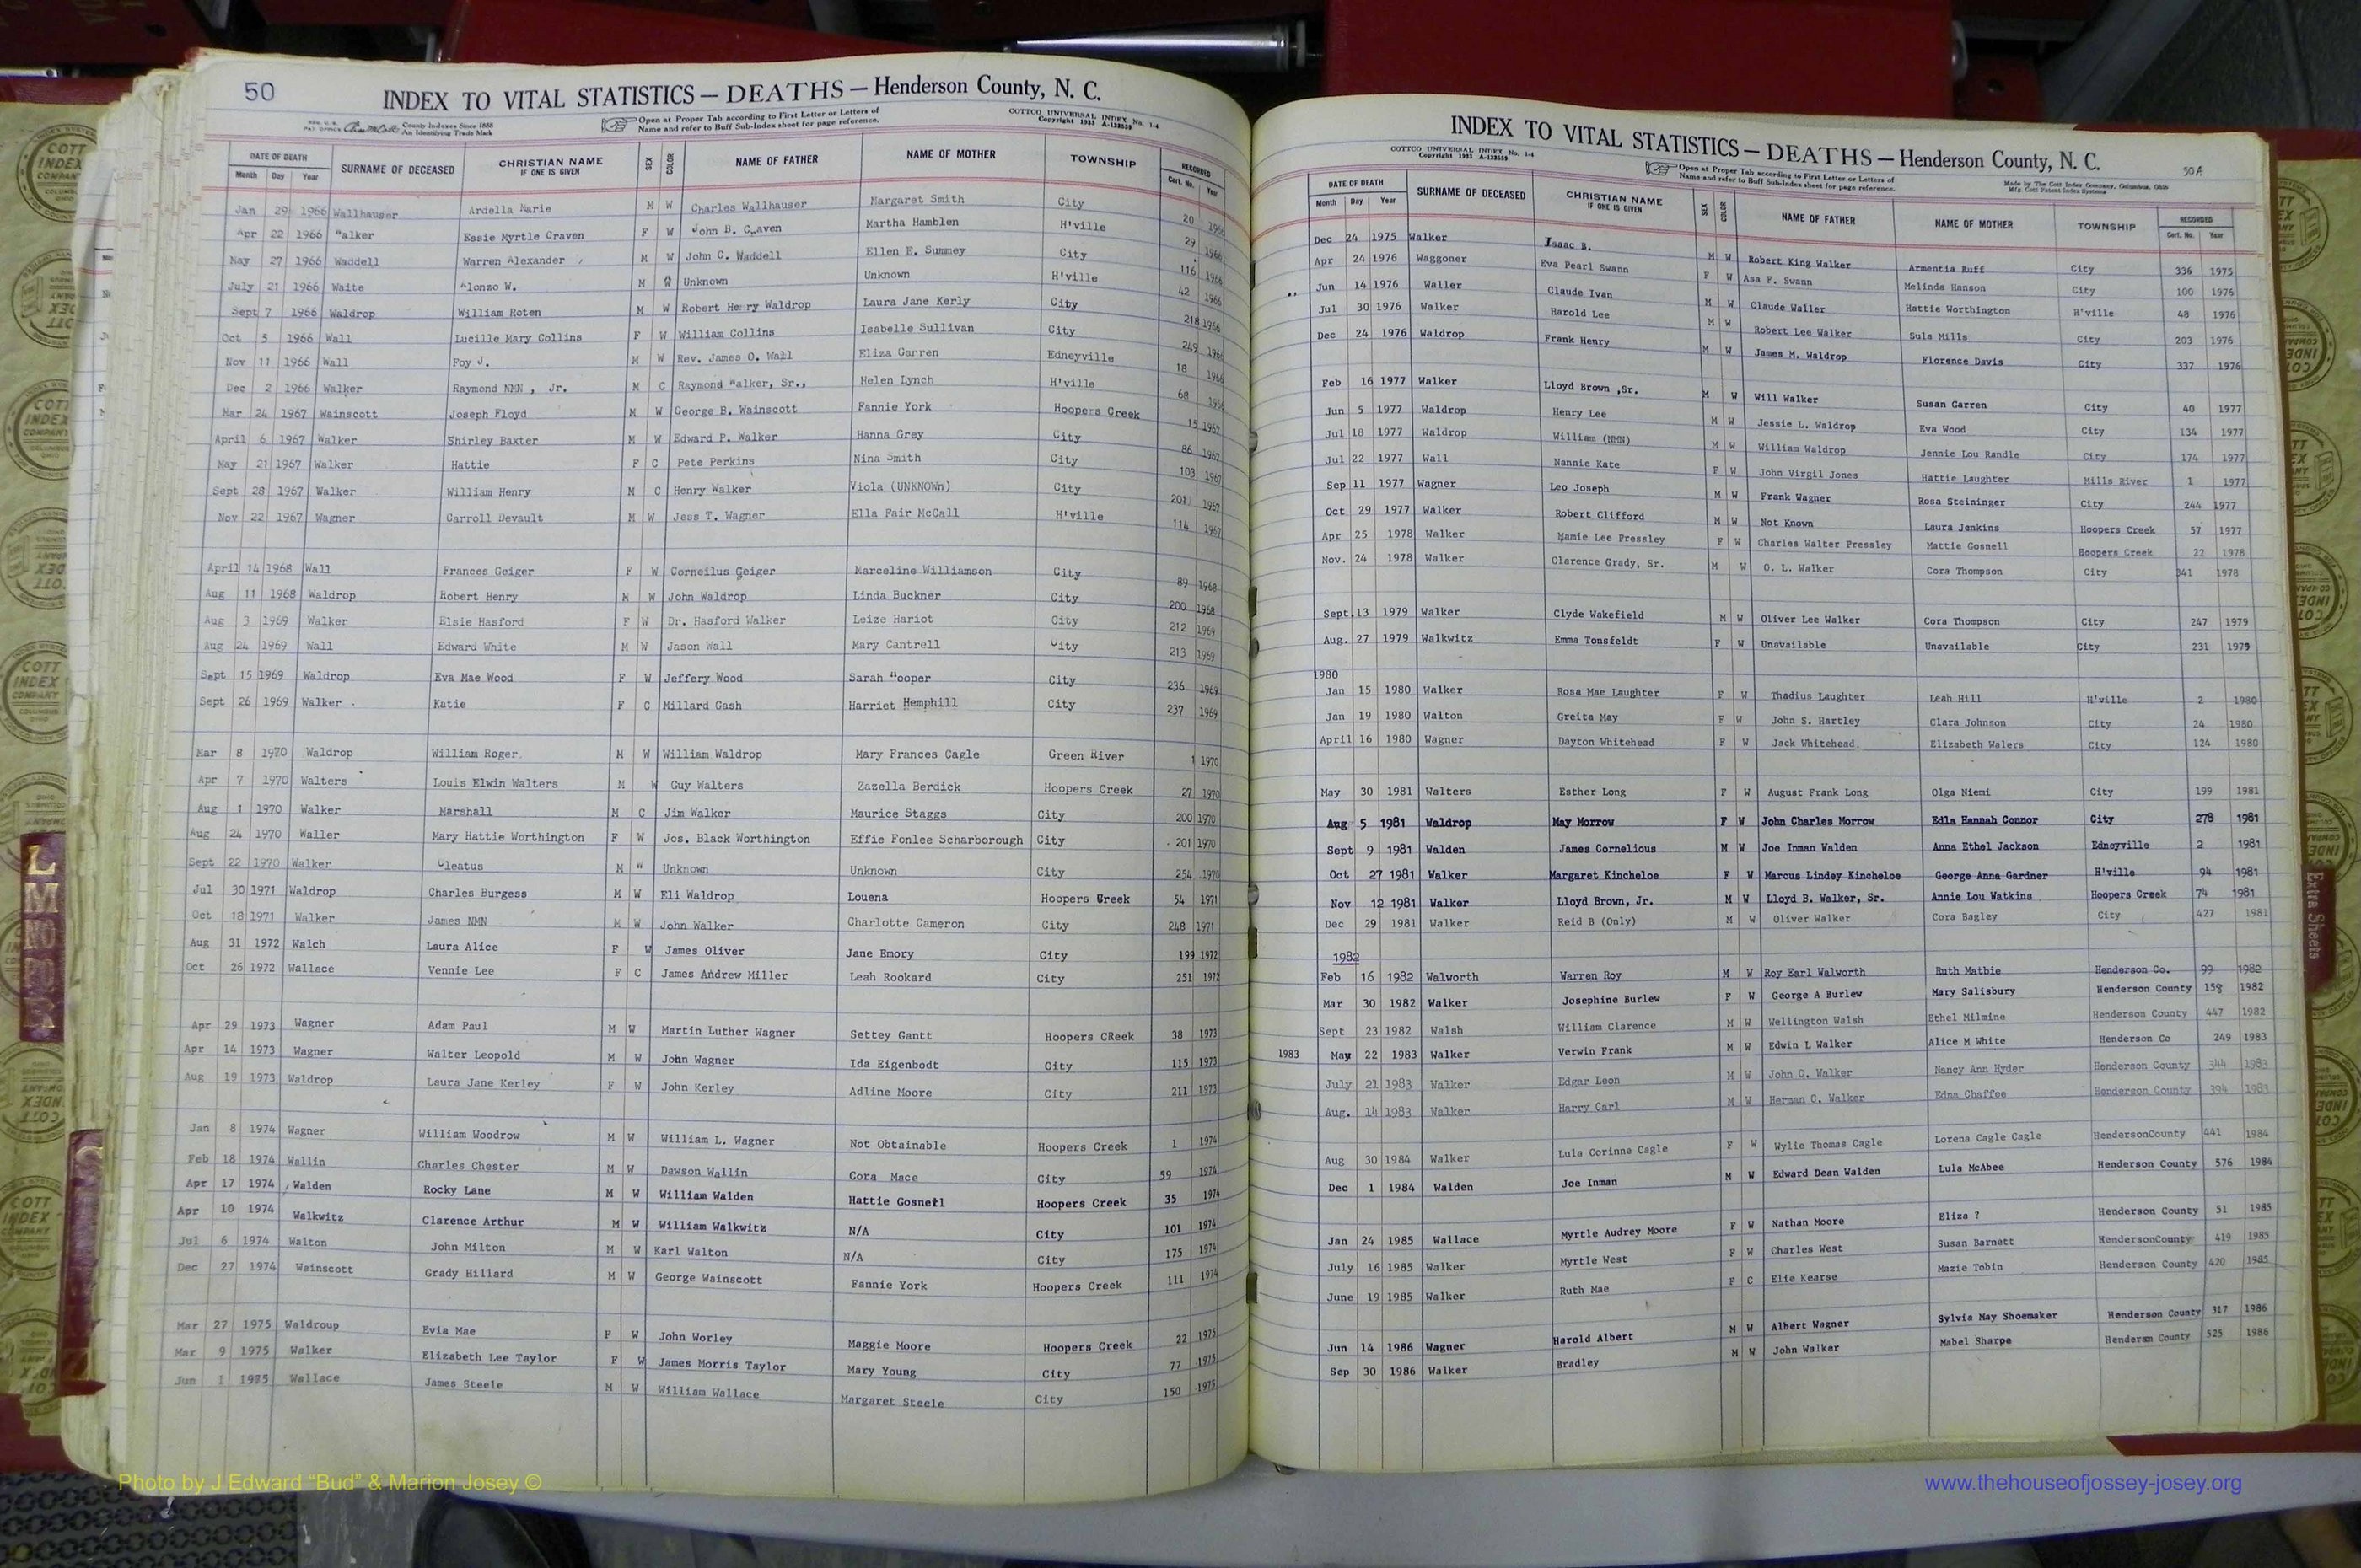 50
INDEX TO VITAL STATISTICS — DEATHS — Henderson County, N. C.
REG. U. S. PAT. OFFICE County Indexes Since 1888 An Identifying Trade Mark
Open at Proper Tab according to First Letter or Letters of Name and refer to Buff Sub-Index sheet for page reference.
COTTCO UNIVERSAL INDEX No. 1-4 Copyright 1933 A-122559
DATE OF DEATH Month Day Year SURNAME OF DECEASED CHRISTIAN NAME IF ONE IS GIVEN SEX COLOR NAME OF FATHER NAME OF MOTHER TOWNSHIP RECORDED Cert. No. Year
Jan 29 1966 Wallhauser Ardella Marie M W Charles Wallhauser Margaret Smith City 20 1966
Apr 22 1966 Walker Essie Myrtle Craven F W John B. Craven Martha Hamblen H'ville 29 1966
May 27 1966 Waddell Warren Alexander M W John C. Waddell Ellen E. Summey City 116 1966
July 21 1966 Waite Alonzo W. M W Unknown Unknown H'ville 42 1966
Sept 7 1966 Waldrop William Roten M W Robert Henry Waldrop Laura Jane Kerly City 218 1966
Oct 5 1966 Wall Lucille Mary Collins F W William Collins Isabelle Sullivan City 249 1966
Nov 11 1966 Wall Foy J. M W Rev. James O. Wall Eliza Garren Edneyville 18 1966
Dec 2 1966 Walker Raymond NMN , Jr. M C Raymond Walker, Sr., Helen Lynch H'ville 68 1966
Mar 24 1967 Wainscott Joseph Floyd M W George B. Wainscott Fannie York Hoopers Creek 15 1967
April 6 1967 Walker Shirley Baxter M W Edward P. Walker Hanna Grey City 86 1967
May 21 1967 Walker Hattie F C Pete Perkins Nina Smith City 103 1967
Sept 28 1967 Walker William Henry M C Henry Walker Viola (UNKNOWn) City 201 1967
Nov 22 1967 Wagner Carroll Devault M W Jess T. Wagner Ella Fair McCall H'ville 114 1967
April 14 1968 Wall Frances Geiger F W Corneilus Geiger Marceline Williamson City 89 1968
Aug 11 1968 Waldrop Robert Henry M W John Waldrop Linda Buckner City 200 1968
Aug 3 1969 Walker Elsie Hasford F W Dr. Hasford Walker Leize Hariot City 212 1969
Aug 24 1969 Wall Edward White M W Jason Wall Mary Cantrell City 213 1969
Sept 15 1969 Waldrop Eva Mae Wood F W Jeffery Wood Sarah Hooper City 236 1969
Sept 26 1969 Walker Katie F C Millard Gash Harriet Hemphill City 237 1969
Mar 8 1970 Waldrop William Roger. M W William Waldrop Mary Frances Cagle Green River 1 1970
Apr 7 1970 Walters Louis Elwin Walters M W Guy Walters Zazella Berdick Hoopers Creek 27 1970
Aug 1 1970 Walker Marshall M C Jim Walker Maurice Staggs City 200 1970
Aug 24 1970 Waller Mary Hattie Worthington F W Jos. Black Worthington Effie Fonlee Scharborough City 201 1970
Sept 22 1970 Walker Cleatus M W Unknown Unknown City 254 1970
Jul 30 1971 Waldrop Charles Burgess M W Eli Waldrop Louena Hoopers Creek 54 1971
Oct 18 1971 Walker James NMN M W John Walker Charlotte Cameron City 248 1971
Aug 31 1972 Walch Laura Alice F W James Oliver Jane Emory City 199 1972
Oct 26 1972 Wallace Vennie Lee F C James Andrew Miller Leah Rookard City 251 1972
Apr 29 1973 Wagner Adam Paul M W Martin Luther Wagner Settey Gantt Hoopers CReek 38 1973
Apr 14 1973 Wagner Walter Leopold M W John Wagner Ida Eigenbodt City 115 1973
Aug 19 1973 Waldrop Laura Jane Kerley F W John Kerley Adline Moore City 211 1973
Jan 8 1974 Wagner William Woodrow M W William L. Wagner Not Obtainable Hoopers Creek 1 1974
Feb 18 1974 Wallin Charles Chester M W Dawson Wallin Cora Mace City 59 1974
Apr 17 1974 Walden Rocky Lane M W William Walden Hattie Gosnell Hoopers Creek 35 1974
Apr 10 1974 Walkwitz Clarence Arthur M W William Walkwitz N/A City 101 1974
Jul 6 1974 Walton John Milton M W Karl Walton N/A City 175 1974
Dec 27 1974 Wainscott Grady Hillard M W George Wainscott Fannie York Hoopers Creek 111 1974
Mar 27 1975 Waldroup Evia Mae F W John Worley Maggie Moore Hoopers Creek 22 1975
Mar 9 1975 Walker Elizabeth Lee Taylor F W James Morris Taylor Mary Young City 77 1975
Jun 1 1975 Wallace James Steele M W William Wallace Margaret Steele City 150 1975
INDEX TO VITAL STATISTICS — DEATHS — Henderson County, N. C.
50A
COTTCO UNIVERSAL INDEX No. 1-4 Copyright 1933 A-122559
Open at Proper Tab according to First Letter or Letters of Name and refer to Buff Sub-Index sheet for page reference.
Made by The Cott Index Company, Columbus, Ohio Mfg. Cott Patent Index Systems
DATE OF DEATH Month Day Year SURNAME OF DECEASED CHRISTIAN NAME IF ONE IS GIVEN SEX COLOR NAME OF FATHER NAME OF MOTHER TOWNSHIP RECORDED Cert. No. Year
Dec 24 1975 Walker Isaac B. M W Robert King Walker Armentia Ruff City 336 1975
Apr 24 1976 Waggoner Eva Pearl Swann F W Asa F. Swann Melinda Hanson City 100 1976
Jun 14 1976 Waller Claude Ivan M W Claude Waller Hattie Worthington H'ville 48 1976
Jul 30 1976 Walker Harold Lee M W Robert Lee Walker Sula Mills City 203 1976
Dec 24 1976 Waldrop Frank Henry M W James M. Waldrop Florence Davis City 337 1976
Feb 16 1977 Walker Lloyd Brown ,Sr. M W Will Walker Susan Garren City 40 1977
Jun 5 1977 Waldrop Henry Lee M W Jessie L. Waldrop Eva Wood City 134 1977
Jul 18 1977 Waldrop William (NMN) M W William Waldrop Jennie Lou Randle City 174 1977
Jul 22 1977 Wall Nannie Kate F W John Virgil Jones Hattie Laughter Mills River 1 1977
Sep 11 1977 Wagner Leo Joseph M W Frank Wagner Rosa Steininger City 244 1977
Oct 29 1977 Walker Robert Clifford M W Not Known Laura Jenkins Hoopers Creek 57 1977
Apr 25 1978 Walker Mamie Lee Pressley F W Charles Walter Pressley Mattie Gosnell Hoopers Creek 22 1978
Nov. 24 1978 Walker Clarence Grady, Sr. M W O. L. Walker Cora Thompson City 341 1978
Sept.13 1979 Walker Clyde Wakefield M W Oliver Lee Walker Cora Thompson City 247 1979
Aug. 27 1979 Walkwitz Emma Tonsfeldt F W Unavailable Unavailable City 231 1979
1980
Jan 15 1980 Walker Rosa Mae Laughter F W Thadius Laughter Leah Hill H'ville 2 1980
Jan 19 1980 Walton Greita May F W John S. Hartley Clara Johnson City 24 1980
April 16 1980 Wagner Dayton Whitehead F W Jack Whitehead Elizabeth Walers City 124 1980
May 30 1981 Walters Esther Long F W August Frank Long Olga Niemi City 199 1981
Aug 5 1981 Waldrop May Morrow F W John Charles Morrow Edla Hannah Connor City 278 1981
Sept 9 1981 Walden James Cornelious M W Joe Inman Walden Anna Ethel Jackson Edneyville 2 1981
Oct 27 1981 Walker Margaret Kincheloe F W Marcus Lindey Kincheloe George Anna Gardner H'ville 94 1981
Nov 12 1981 Walker Lloyd Brown, Jr. M W Lloyd B. Walker, Sr. Annie Lou Watkins Hoopers Creek 74 1981
Dec 29 1981 Walker Reid B (Only) M W Oliver Walker Cora Bagley City 427 1981
1982
Feb 16 1982 Walworth Warren Roy M W Roy Earl Walworth Ruth Matbie Henderson Co. 99 1982
Mar 30 1982 Walker Josephine Burlew F W George A Burlew Mary Salisbury Henderson County 158 1982
Sept 23 1982 Walsh William Clarence M W Wellington Walsh Ethel Milmine Henderson County 447 1982
1983 May 22 1983 Walker Verwin Frank M W Edwin L Walker Alice M White Henderson Co 249 1983
July 21 1983 Walker Edgar Leon M W John C. Walker Nancy Ann Hyder Henderson County 344 1983
Aug. 14 1983 Walker Harry Carl M W Herman C. Walker Edna Chaffee Henderson County 394 1983
Aug 30 1984 Walker Lula Corinne Cagle F W Wylie Thomas Cagle Lorena Cagle Cagle HendersonCounty 441 1984
Dec 1 1984 Walden Joe Inman M W Edward Dean Walden Lula McAbee Henderson County 576 1984
Jan 24 1985 Wallace Myrtle Audrey Moore F W Nathan Moore Eliza ? Henderson County 51 1985
July 16 1985 Walker Myrtle West F W Charles West Susan Barnett HendersonCounty 419 1985
June 19 1985 Walker Ruth Mae F C Elie Kearse Mazie Tobin Henderson County 420 1985
Jun 14 1986 Wagner Harold Albert M W Albert Wagner Sylvia May Shoemaker Henderson County 317 1986
Sep 30 1986 Walker Bradley M W John Walker Mabel Sharpe Henderson County 525 1986
Extra Sheets
Photo by J Edward “Bud” & Marion Josey ©
www.thehouseofjossey-josey.org